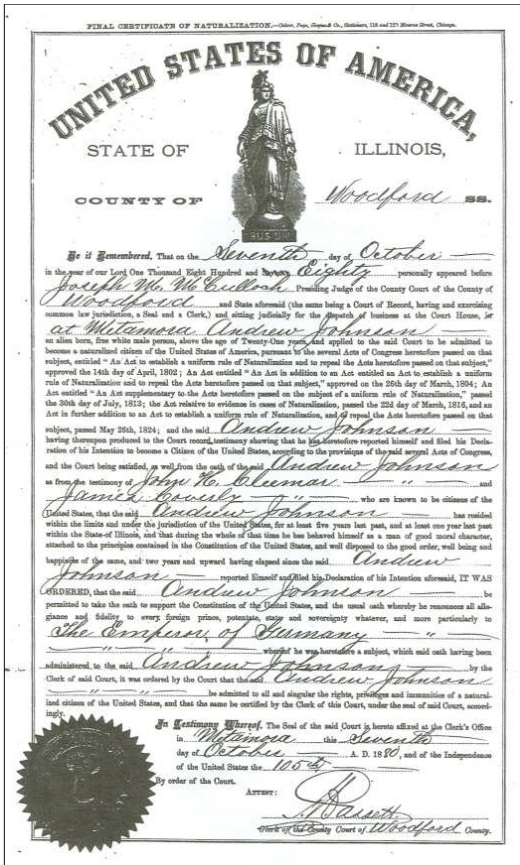 FINAL CERTIFICATE OF NATURALIZATION.—Culver, Page, Hoyne & Co., Stationers, 118 and 120 Monroe Street, Chicago.
UNITED STATES OF AMERICA,
STATE OF ILLINOIS,
COUNTY OF Woodford SS.
Be it Remembered, That on the Seventh day of October
in the year of our Lord One Thousand Eight Hundred and Eighty personally appeared before
Joseph M. McCulloch Presiding Judge of the County Court of the County of
Woodford and State aforesaid (the same being a Court of Record, having and exercising
common law jurisdiction, a Seal and a Clerk,) and sitting judicially for the dispatch of business at the Court House,
at Metamora Andrew Johnson
an alien born, free white male person, above the age of Twenty-One years, and applied to the said Court to be admitted to
become a naturalized citizen of the United States of America, pursuant to the several Acts of Congress heretofore passed on that
subject, entitled "An Act to establish a uniform rule of Naturalization and to repeal the Acts heretofore passed on that subject,"
approved the 14th day of April, 1802; An Act entitled "An Act in addition to an Act entitled an Act to establish a uniform
rule of Naturalization and to repeal the Acts heretofore passed on that subject," approved on the 26th day of March, 1804; An
Act entitled "An Act supplementary to the Acts heretofore passed on the subject of a uniform rule of Naturalization," passed
the 30th day of July, 1813; the Act relative to evidence in cases of Naturalization, passed the 22d day of March, 1816, and an
Act in further addition to an Act to establish a uniform rule of Naturalization, and to repeal the Acts heretofore passed on that
subject, passed May 26th, 1824; and the said Andrew Johnson
having thereupon produced to the Court record testimony showing that he has heretofore reported himself and filed his Decla-
ration of his Intention to become a Citizen of the United States, according to the provisions of the said several Acts of Congress,
and the Court being satisfied, as well from the oath of the said Andrew Johnson
as from the testimony of John H. " and
James " who are known to be citizens of the
United States, that the said Andrew Johnson has resided
within the limits and under the jurisdiction of the United States, for at least five years last past, and at least one year last past
within the State of Illinois, and that during the whole of that time he has behaved himself as a man of good moral character,
attached to the principles contained in the Constitution of the United States, and well disposed to the good order, well being and
happiness of the same, and two years and upward having elapsed since the said Andrew
Johnson reported himself and filed his Declaration of his Intention aforesaid, IT WAS
ORDERED, that the said Andrew Johnson be
permitted to take the oath to support the Constitution of the United States, and the usual oath whereby he renounces all alle-
giance and fidelity to every foreign prince, potentate, state and sovereignty whatever, and more particularly to
The Emperor of Germany "
" " whereof he was heretofore a subject, which said oath having been
administered to the said Andrew Johnson by the
Clerk of said Court, it was ordered by the Court that the said Andrew Johnson
" " " be admitted to all and singular the rights, privileges and immunities of a natural-
ized citizen of the United States, and that the same be certified by the Clerk of this Court, under the seal of said Court, accord-
ingly.
In Testimony Whereof, The Seal of the said Court is hereto affixed at the Clerk's Office
in Metamora this Seventh
day of October A. D. 1880, and of the Independence
of the United States the 105th
By order of the Court.
ATTEST:
Hassett
Clerk of the County Court of Woodford County.